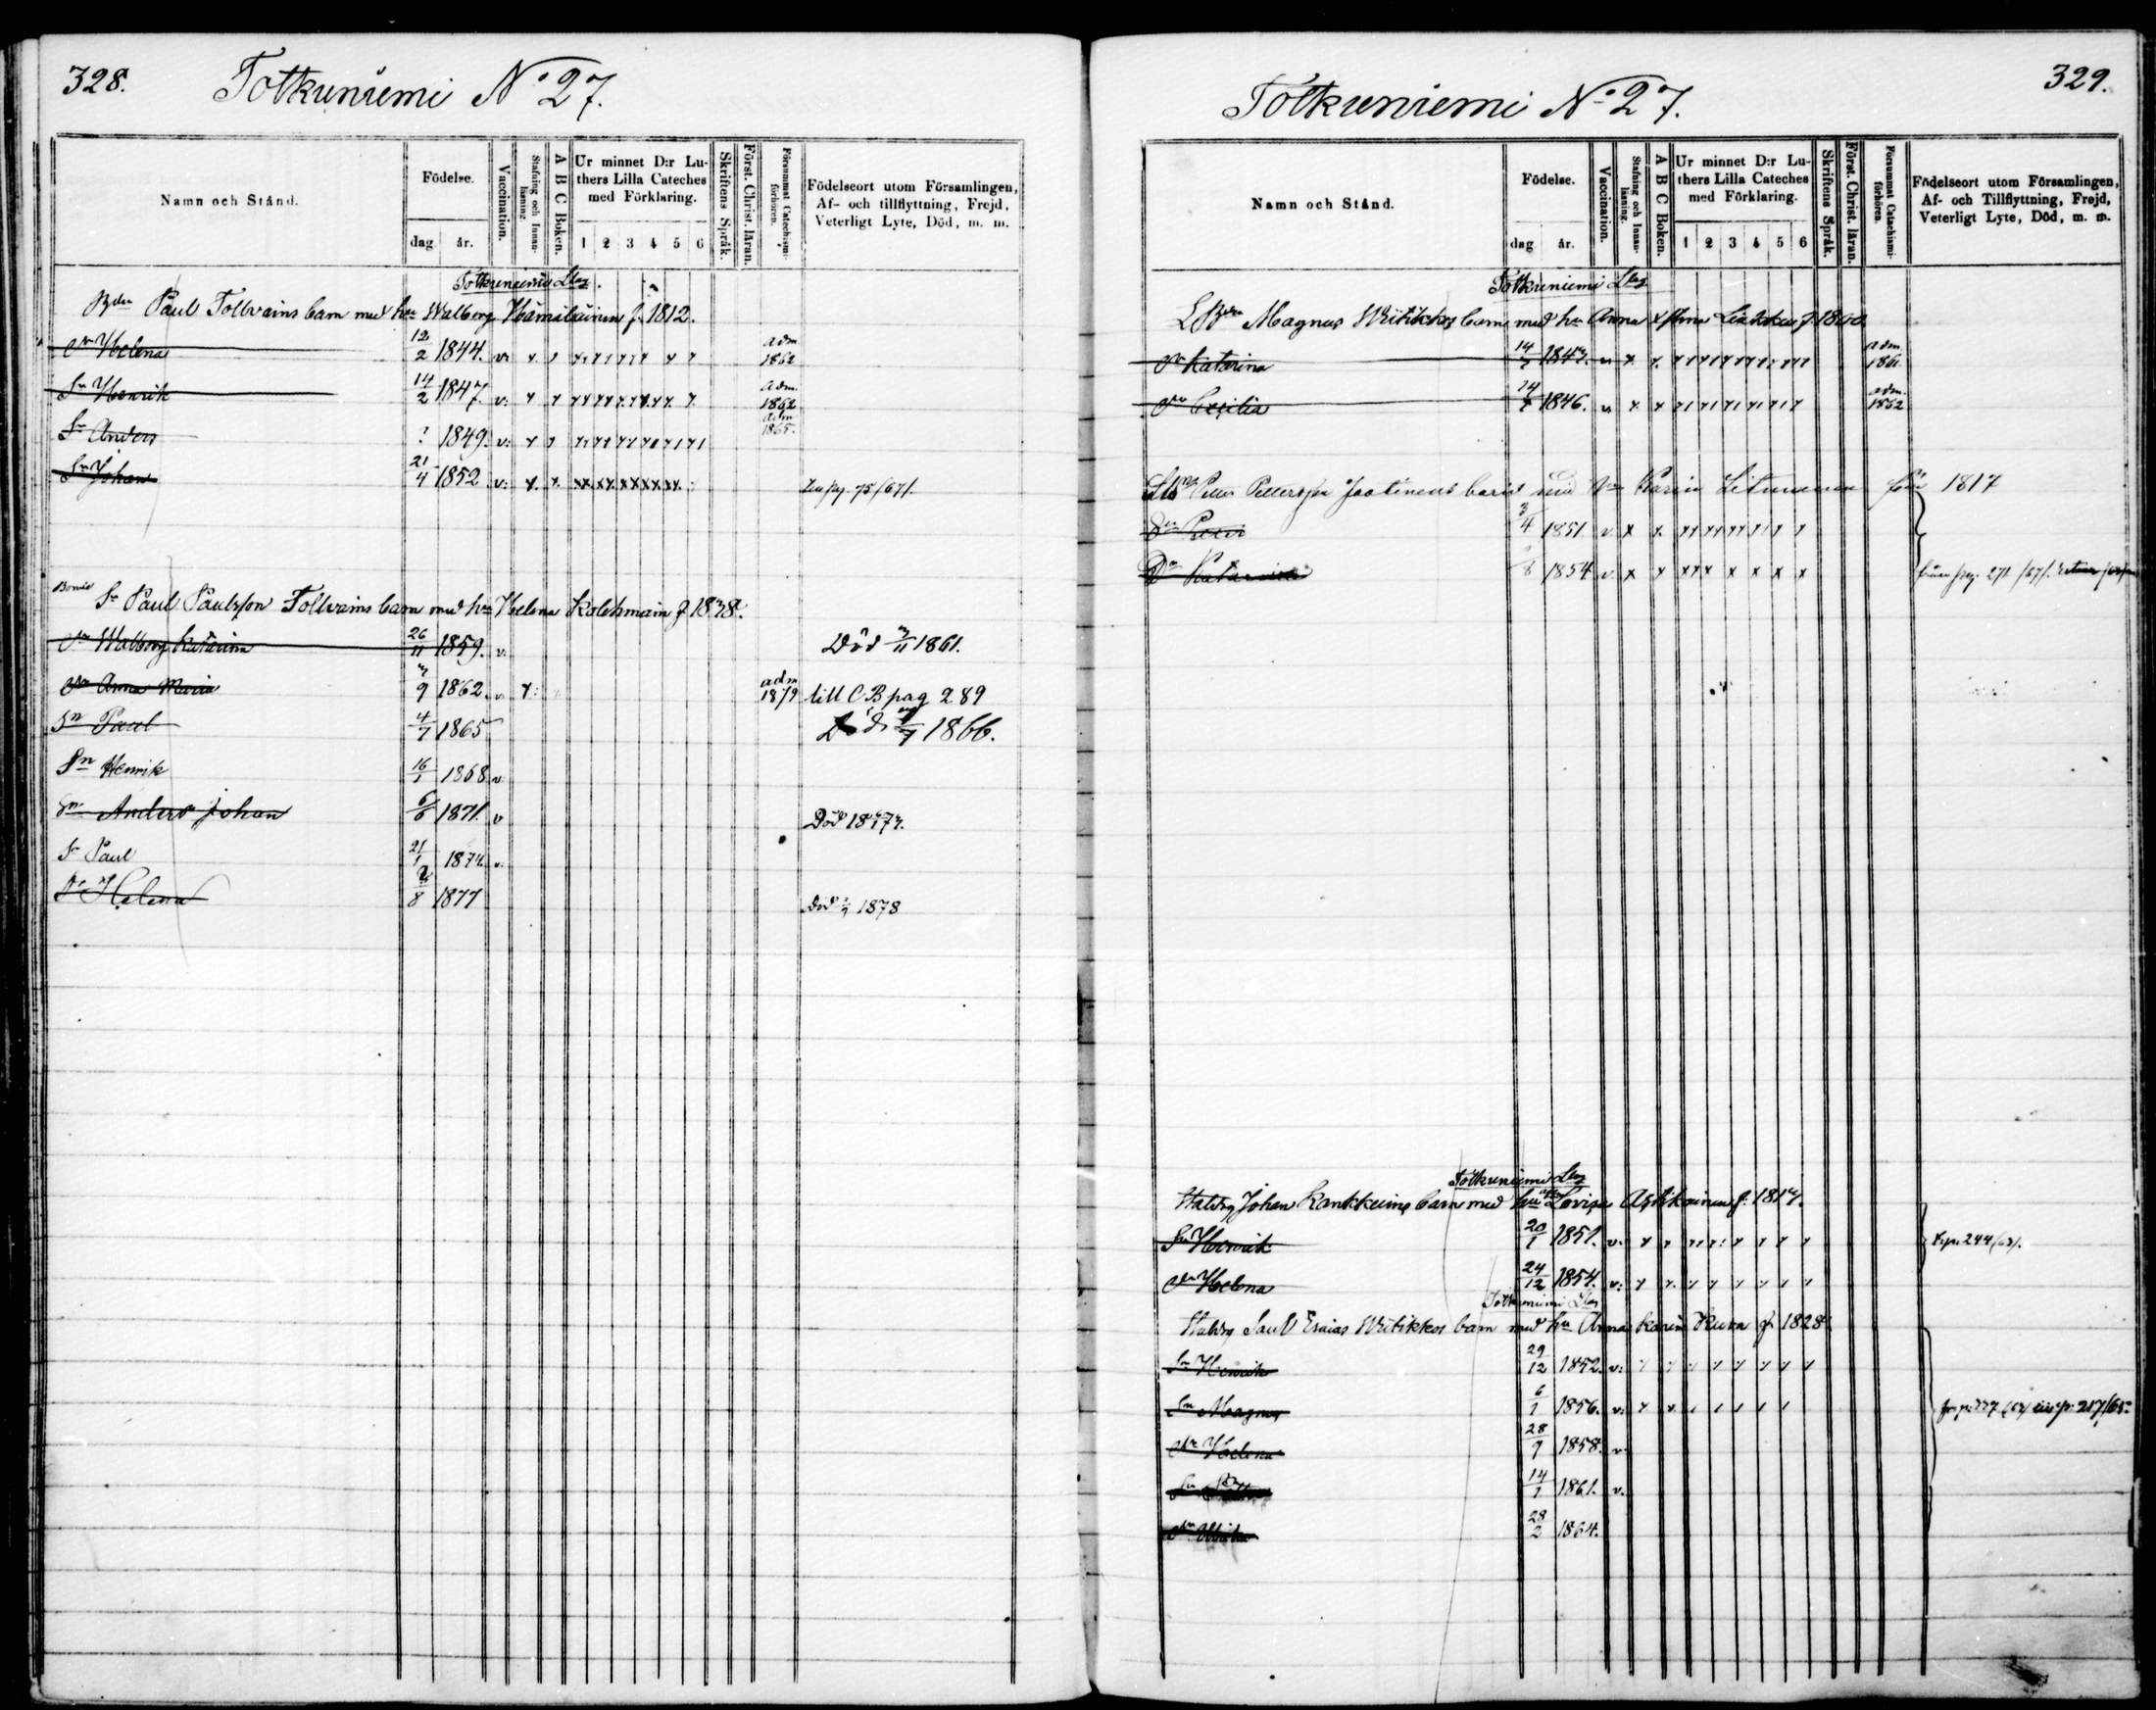 328.
Totkuniemi No 27.
Namn och Stånd.
Födelse.
dag. år.
Vaccination.
Stafning och Innanläsning.
A B C Boken.
Ur minnet D:r Luthers Lilla Cateches med Förklaring.
1 2 3 4 5 6
Skriftens Språk.
Först. Christ. läran.
Försummat Catechismiförhören.
Födelseort utom Församlingen, Af- och tillflyttning, Frejd, Veterligt Lyte, Död, m. m.
Totkuniemi
Bdn Paul Tollvains barn med hu Walborg Hämäläinen f. 1812.
Dr Helena 12/2 1844. v. adm 1862
Sn Henrik 14/2 1847. v: adm. 1862
Sn Anders ? 1849. v: adm 1865.
Sn Johan 21/4 1852 v: 75/67/.
Bonde Sn Paul Paulsson Tollvains barn med hu Helena Kolehmain f. 1838.
Dr Walborg Katarina 26/11 1859. v. Död /11 1861.
Dr Anna Maria /9 1862. v adm 1879 till C B pag 289
Sn Paul 4/7 1865 Död 1866.
Sn Henrik 16/1 1868 v.
Sn Anders Johan 6/6 1871. v Död
Sn Paul 21/1 1874. v.
Dr Helena /8 1877 Död 1878
329.
Totkuniemi No 27.
Namn och Stånd.
Födelse.
dag år.
Vaccination.
Stafning och Innanläsning.
A B C Boken.
Ur minnet D:r Luthers Lilla Cateches med Förklaring.
1 2 3 4 5 6
Skriftens Språk.
Först. Christ. läran.
Försummat Catechismiförhören.
Födelseort utom Församlingen, Af- och Tillflyttning, Frejd, Veterligt Lyte, Död, m. m.
Totkuniemi
Magnus Witikkos barn med hu Anna
Dr Katarina 14/ 184 v adm 1861
Dr Cecilia 1846. v adm. 1852
Petter Pettersson Jaatinens barn med Karin 1817
Sn Petter 3/4 1851. v.
Dr Katarina /8 1854 v. pag. 271 /67/.
Totkuniemi
Johan Kankkuins barn med hu Lovisa f. 1817.
Sn Henrik 20/1 1851. v. 244/63/.
Dr Helena 24/12 1854. v.
Totkuniemi
Paul Esaias Witikkos barn med hu Anna Karin f. 1828
Sn Henrik 29/12 1852. v:
Sn Magnus 6/1 1856. v. 217/65
Dr Helena 28/9 1858. v
Sn 14/1 1861. v.
Dr 28/2 1864.